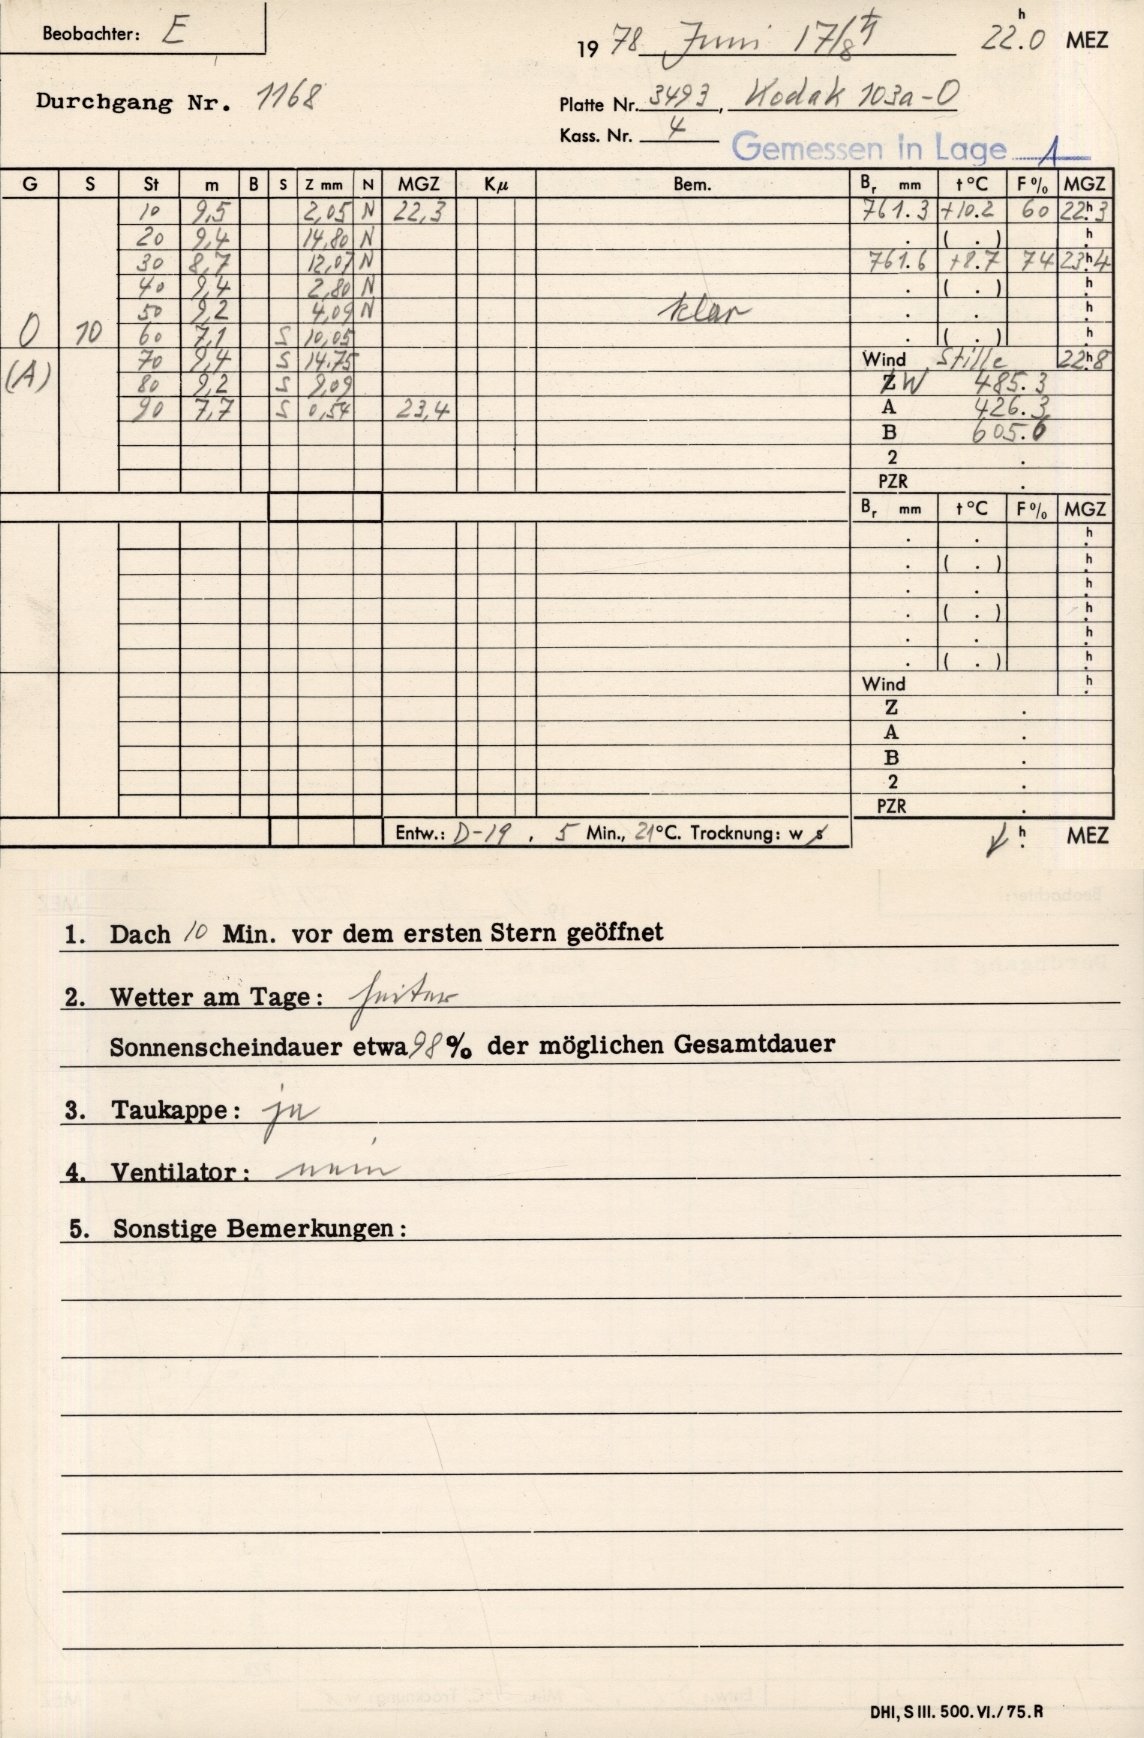 Beobachter: E
1978 Juni 17/18 22h.0 MEZ
Durchgang Nr. 1168
Platte Nr. 3493, Kodak 103a-O
Kass. Nr. 4
Gemessen in Lage 1
G S St m B S Z mm N MGZ Kμ Bem. Br mm t°C F% MGZ
10 9,5 2,05 N 22,3 761.3 +10.2 60 22h.3
20 9,4 14,80 N . ( . ) h.
30 8,7 12,07 N 761.6 +8.7 74 23h.4
40 9,4 2,80 N . ( . ) h.
50 9,2 4,09 N klar . . h.
0 10 60 7,1 S 10,05 . ( . ) h.
(A) 70 9,4 S 14.75 Wind Stille 22h.8
80 9,2 S 9,09 Z W 485.3
90 7,7 S 0,54 23,4 A 426.3
B 605.6
2 .
PZR .
Br mm t°C F% MGZ
. . h.
. ( . ) h.
. . h.
. ( . ) h.
. . h.
. ( . ) h.
Wind h.
Z .
A .
B .
2 .
PZR .
Entw.: D-19 , 5 Min., 21°C. Trocknung: w s h. MEZ
1. Dach 10 Min. vor dem ersten Stern geöffnet
2. Wetter am Tage: heiter
Sonnenscheindauer etwa 98 % der möglichen Gesamtdauer
3. Taukappe: ja
4. Ventilator: nein
5. Sonstige Bemerkungen:
DHI, S III. 500. VI./75. R